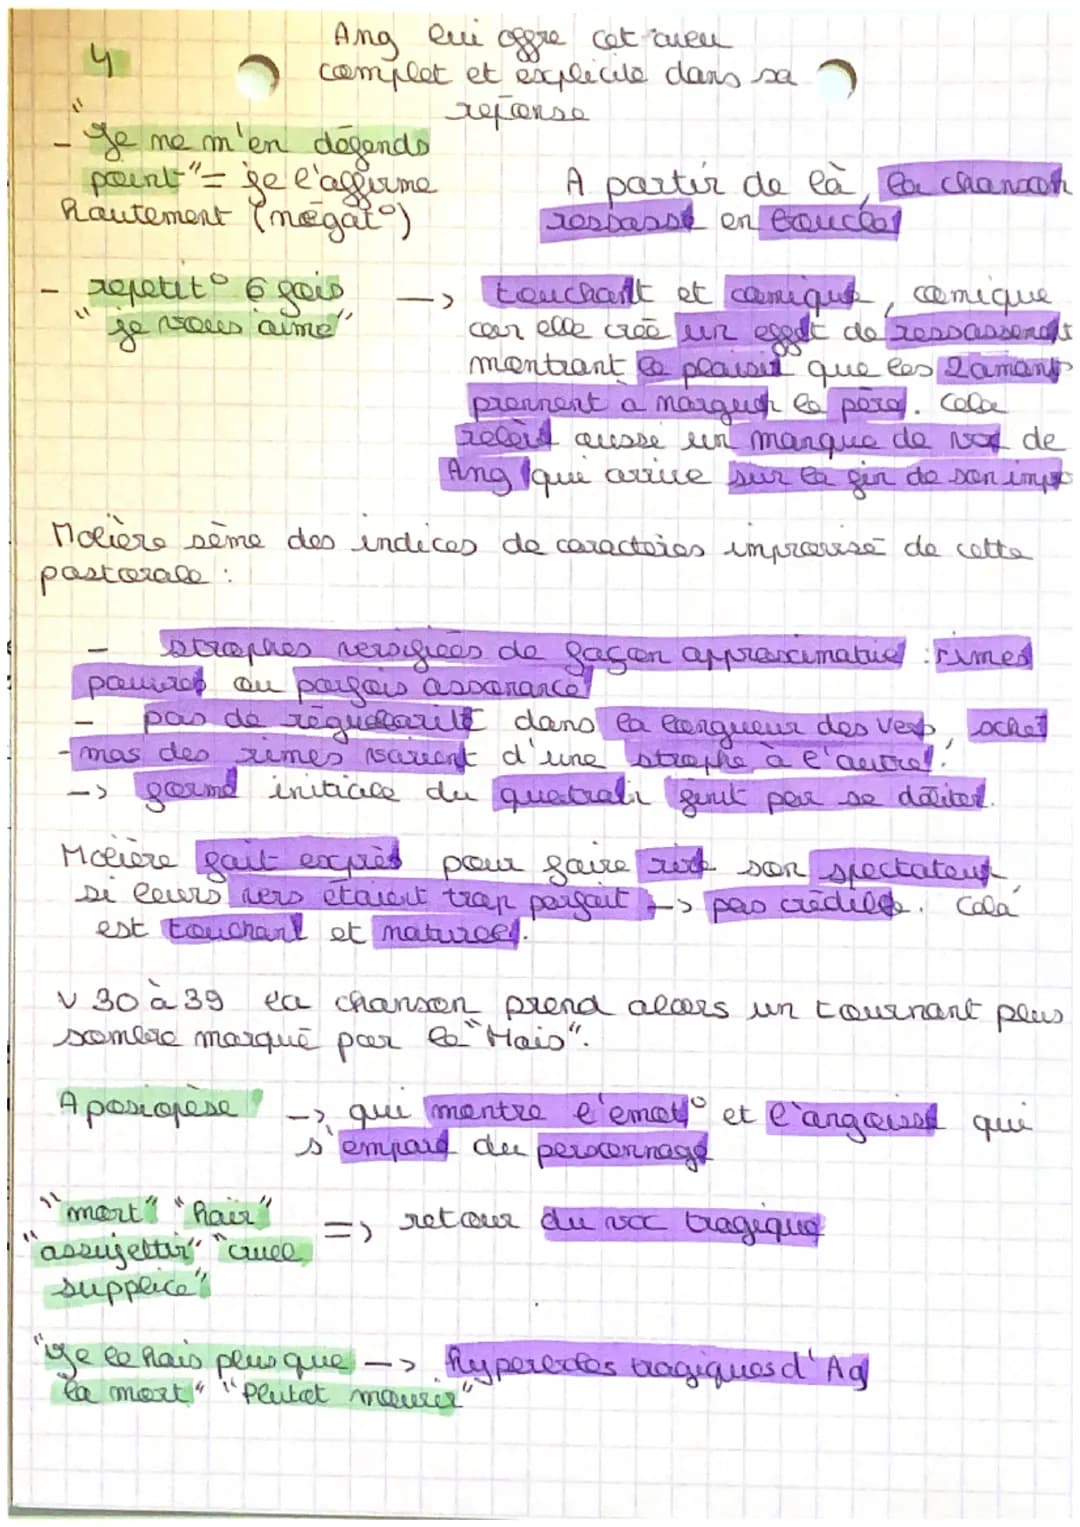 4
Ang lui offre cet aveu
complet et explicite dans sa
réponse
- "Je ne m'en défends
point" = je l'affirme
hautement (négat°)
A partir de là, la chanson
ressasse en boucle
- repetit° 6 fois
"je vous aime"
-> touchant et comique, comique
car elle crée un effet de ressassement
montrant le plaisir que les 2 amants
prennent à marquer le père. Cela
relève aussi un manque de voc de
Ang qui arrive sur la fin de son impro
Molière sème des indices de caractères improvisé de cette
pastorale :
- strophes versifiées de façon approximative : rimes
pauvres ou parfois assonance
- pas de régularité dans la longueur des vers, sché
-mas des rimes varient d'une strophe à l'autre.
-> forme initiale du quatrain finit par se déliter.
Molière fait exprès pour faire rire son spectateur
si leurs vers étaient trop parfait -> pas crédible. Cela
est touchant et naturel.
v 30 à 39 la chanson prend alors un tournant plus
sombre marqué par le "Mais".
Aposiopèse -> qui montre l'émot° et l'angoisse qui
s'empare du personnage
"mort" "haïr"
"assujettir" "cruel
supplice"
=> retour du voc tragique
"Je le hais plus que -> hyperboles tragiques d'Ag
la mort" "Plutot mourir"